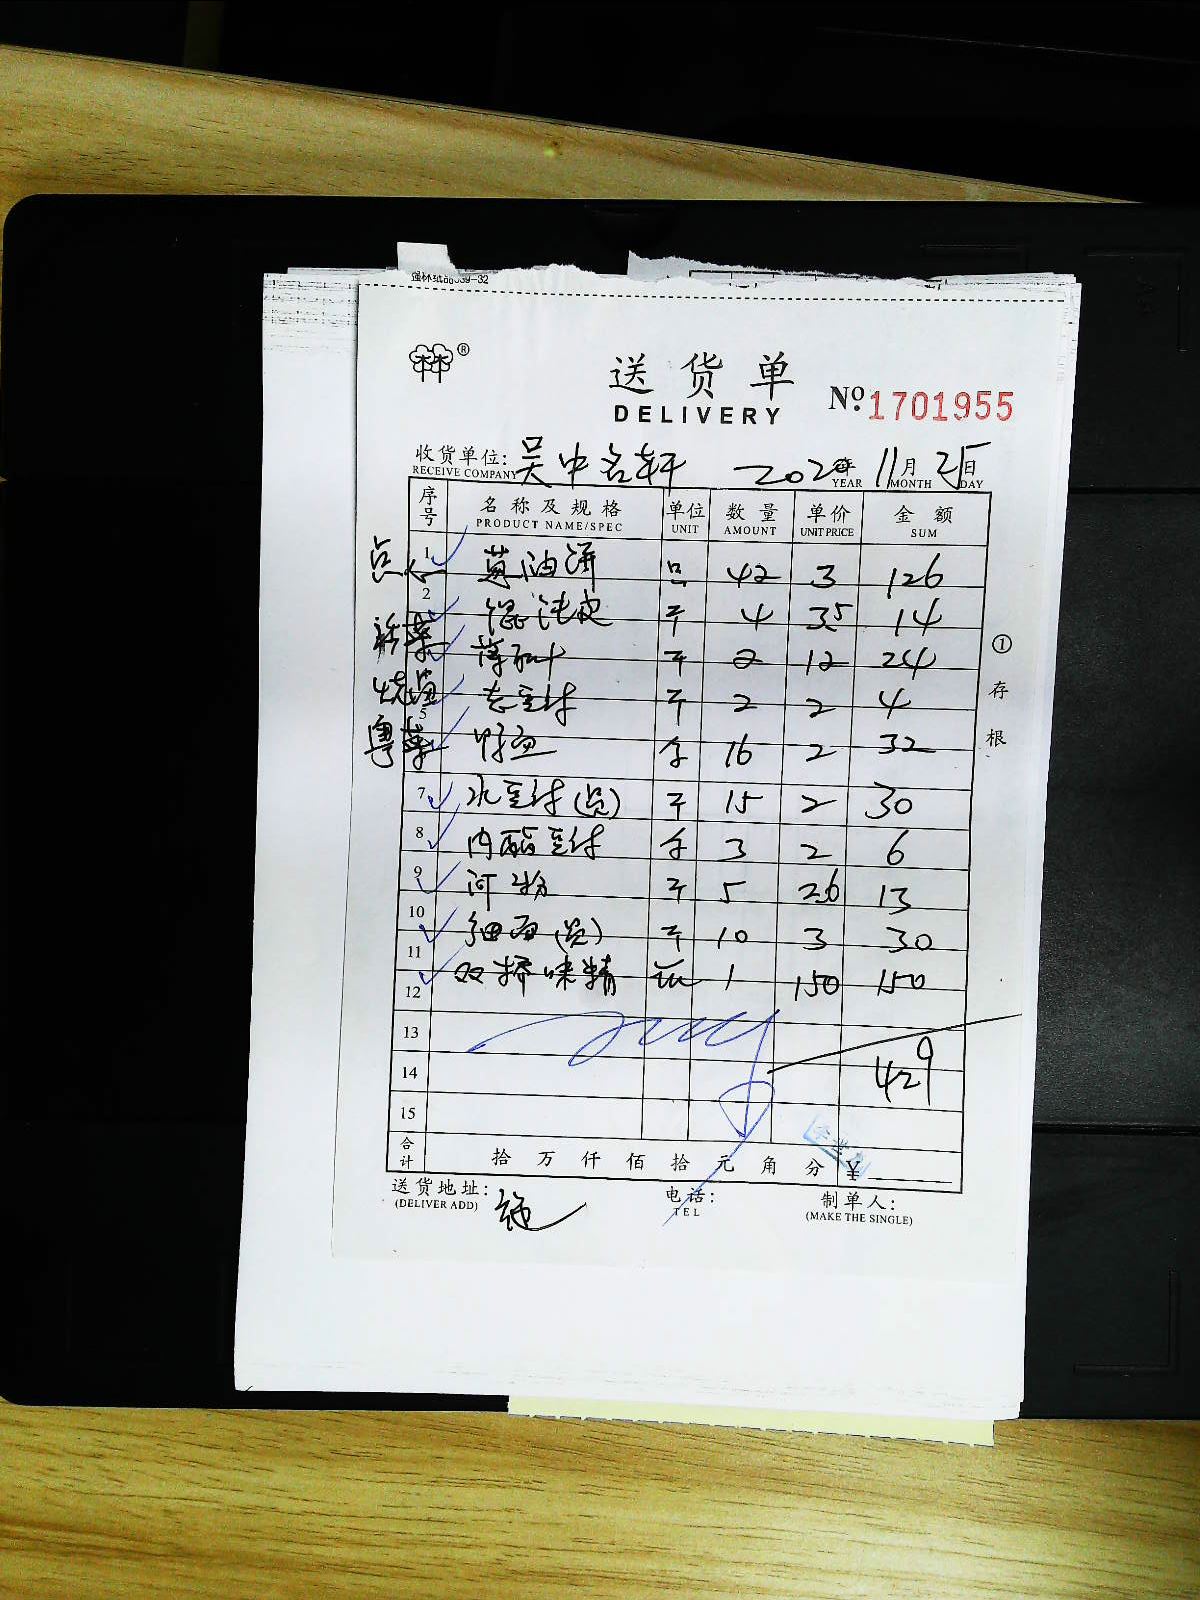 送货单
DELIVERY
№ 1701955
收货单位: 吴中名轩 2020年 11月 25日
RECEIVE COMPANY YEAR MONTH DAY
序号 名称及规格 单位 数量 单价 金额
PRODUCT NAME/SPEC UNIT AMOUNT UNIT PRICE SUM
点心 1 葱油饼 只 42 3 126
2 馄饨皮 斤 4 3.5 14
斤 2 12 24
烧腊 老豆付 斤 2 2 4
5
粤菜 鸭血 个 16 2 32
7 水豆付(员) 斤 15 2 30
8 内酯豆付 个 3 2 6
9 河粉 斤 5 2.6 13
10 细面(员) 斤 10 3 30
11 双桥味精 1 150 150
12
13
14 429
15
合计 拾 万 仟 佰 拾 元 角 分 ¥
送货地址: 电话: 制单人:
(DELIVER ADD) TEL (MAKE THE SINGLE)
①存根